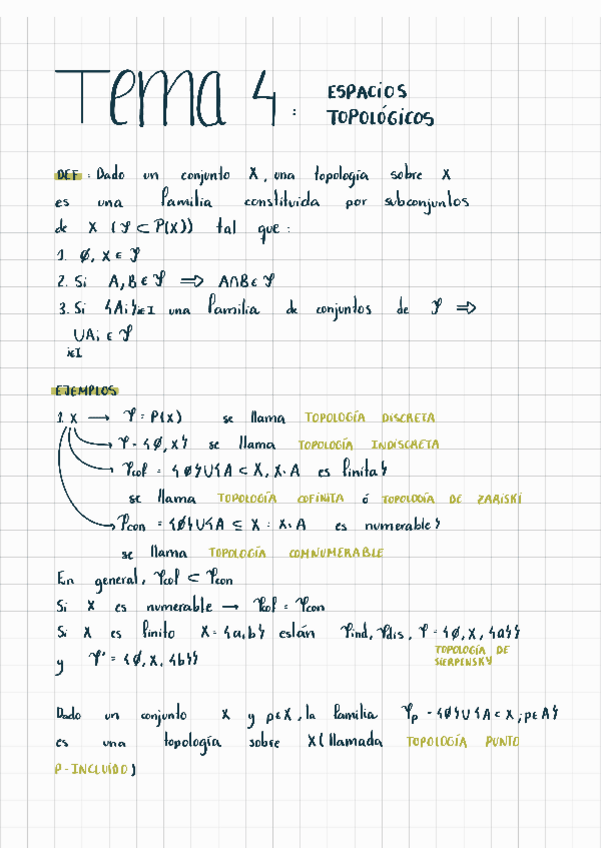 Tema 4: ESPACIOS
TOPOLÓGICOS
DEF: Dado un conjunto X, una topología sobre X
es una familia constituida por subconjuntos
de X (𝒯 ⊂ P(X)) tal que:
1. ∅, X ∈ 𝒯
2. Si A, B ∈ 𝒯 ⟹ A∩B ∈ 𝒯
3. Si {Ai}i∈I una familia de conjuntos de 𝒯 ⟹
∪Ai ∈ 𝒯
i∈I
EJEMPLOS
1. X ⟶ 𝒯 = P(X) se llama TOPOLOGÍA DISCRETA
𝒯 = {∅, X} se llama TOPOLOGÍA INDISCRETA
𝒯cof = {∅}∪{A ⊂ X, X\A es finita}
se llama TOPOLOGÍA COFINITA ó TOPOLOGÍA DE ZARISKI
𝒯con = {∅}∪{A ⊆ X : X\A es numerable}
se llama TOPOLOGÍA CONUMERABLE
En general, 𝒯cof ⊂ 𝒯con
Si X es numerable ⟶ 𝒯cof = 𝒯con
Si X es finito X = {a,b} están 𝒯ind, 𝒯dis, 𝒯 = {∅, X, {a}}
y 𝒯' = {∅, X, {b}} TOPOLOGÍA DE
SIERPINSKY
Dado un conjunto X y p∈X, la familia 𝒯p = {∅}∪{A ⊂ X ; p∈A}
es una topología sobre X (llamada TOPOLOGÍA PUNTO
P-INCLUÍDO)